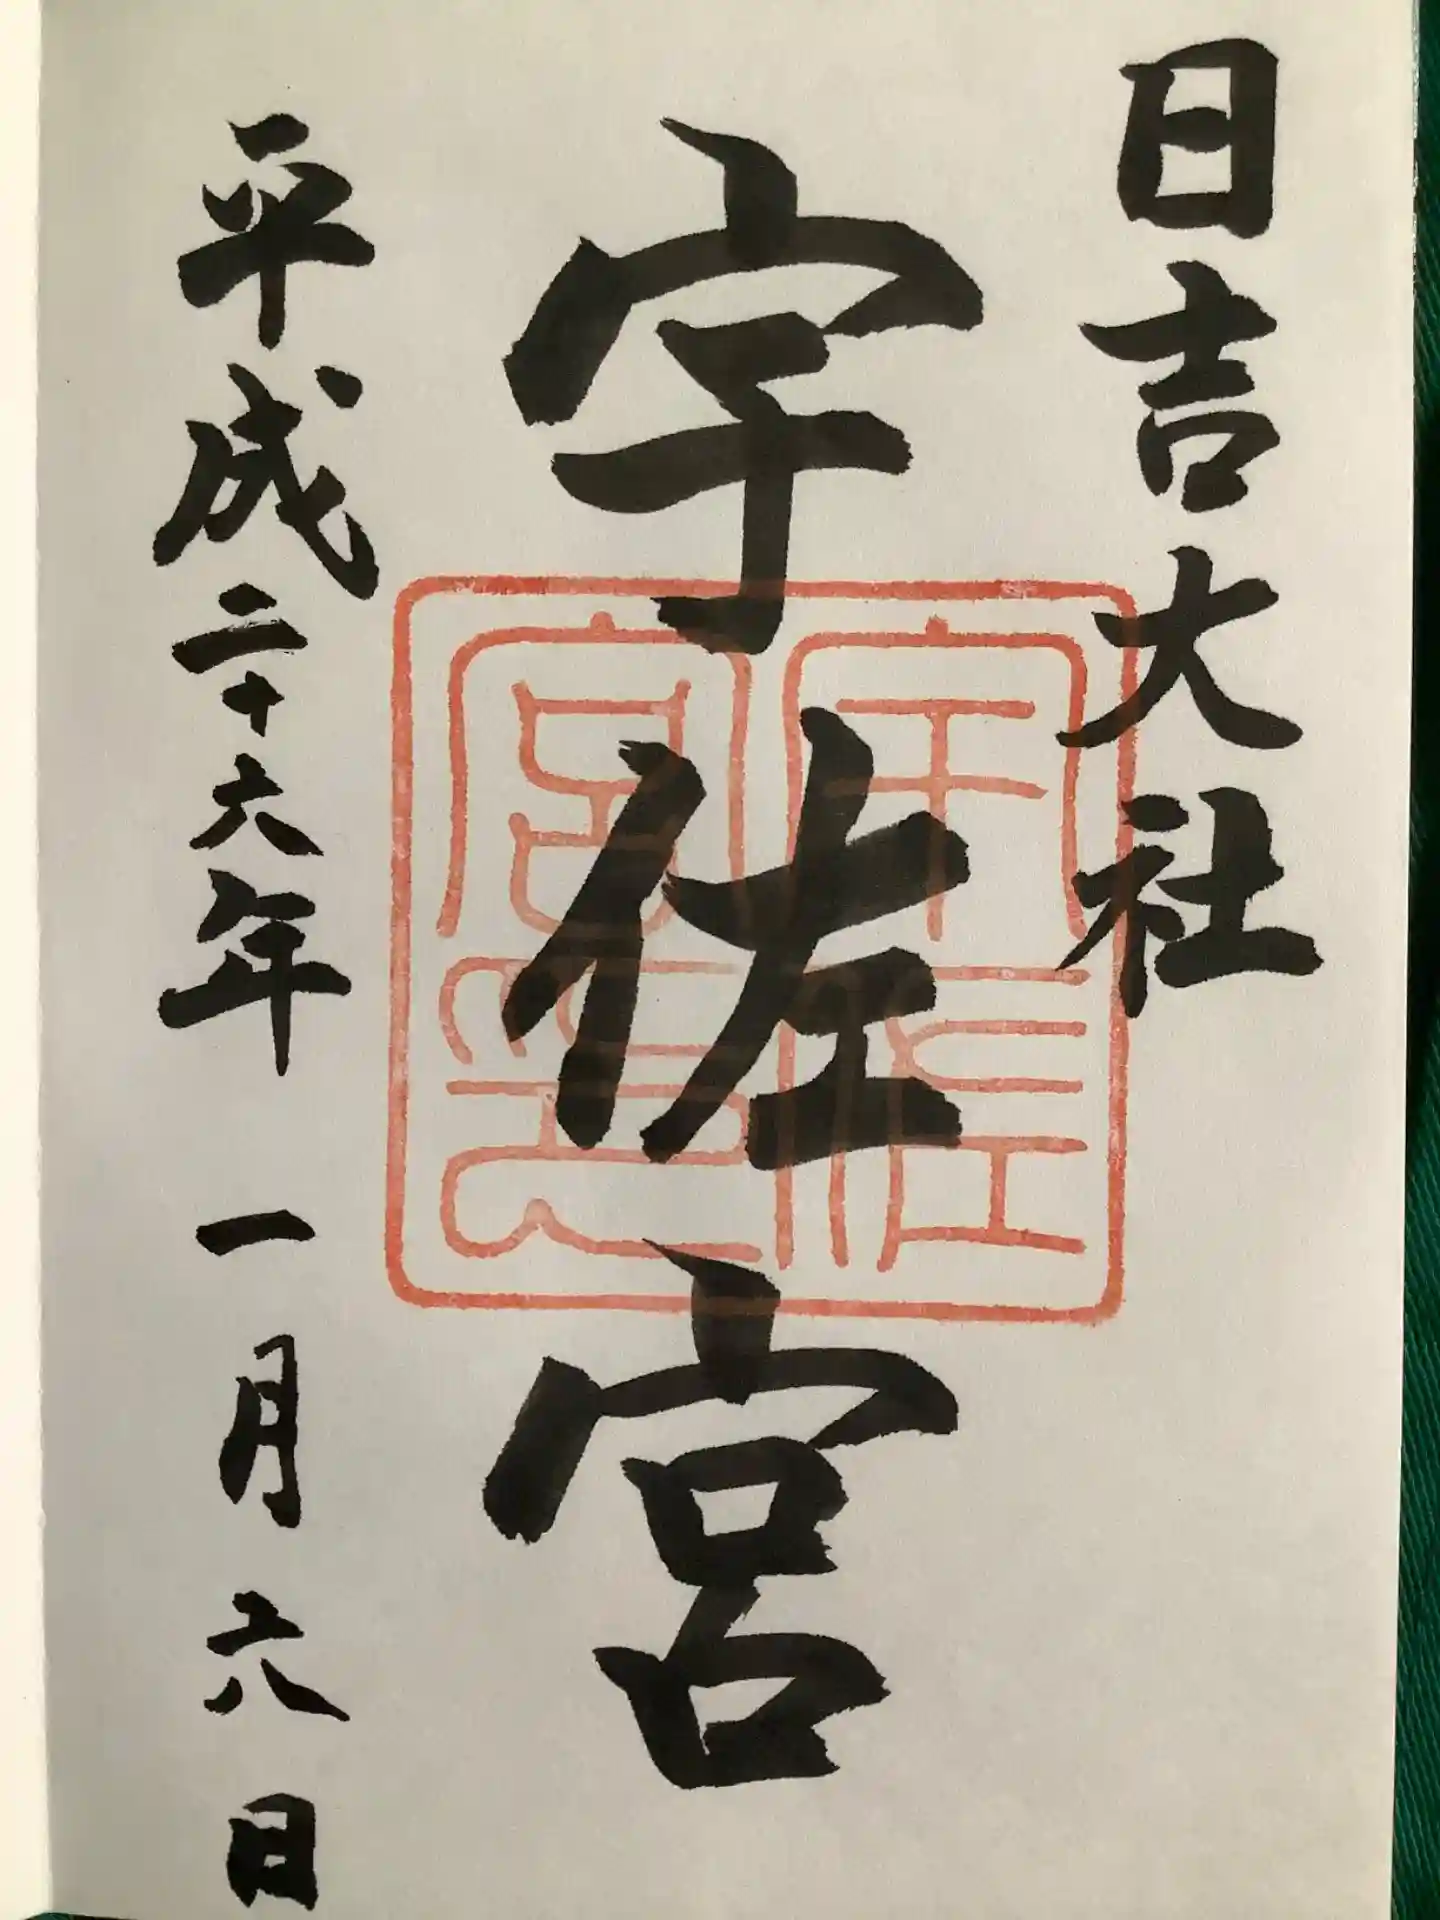 日吉大社
宇佐宮
宇佐
宮印
平成二十六年 一月六日